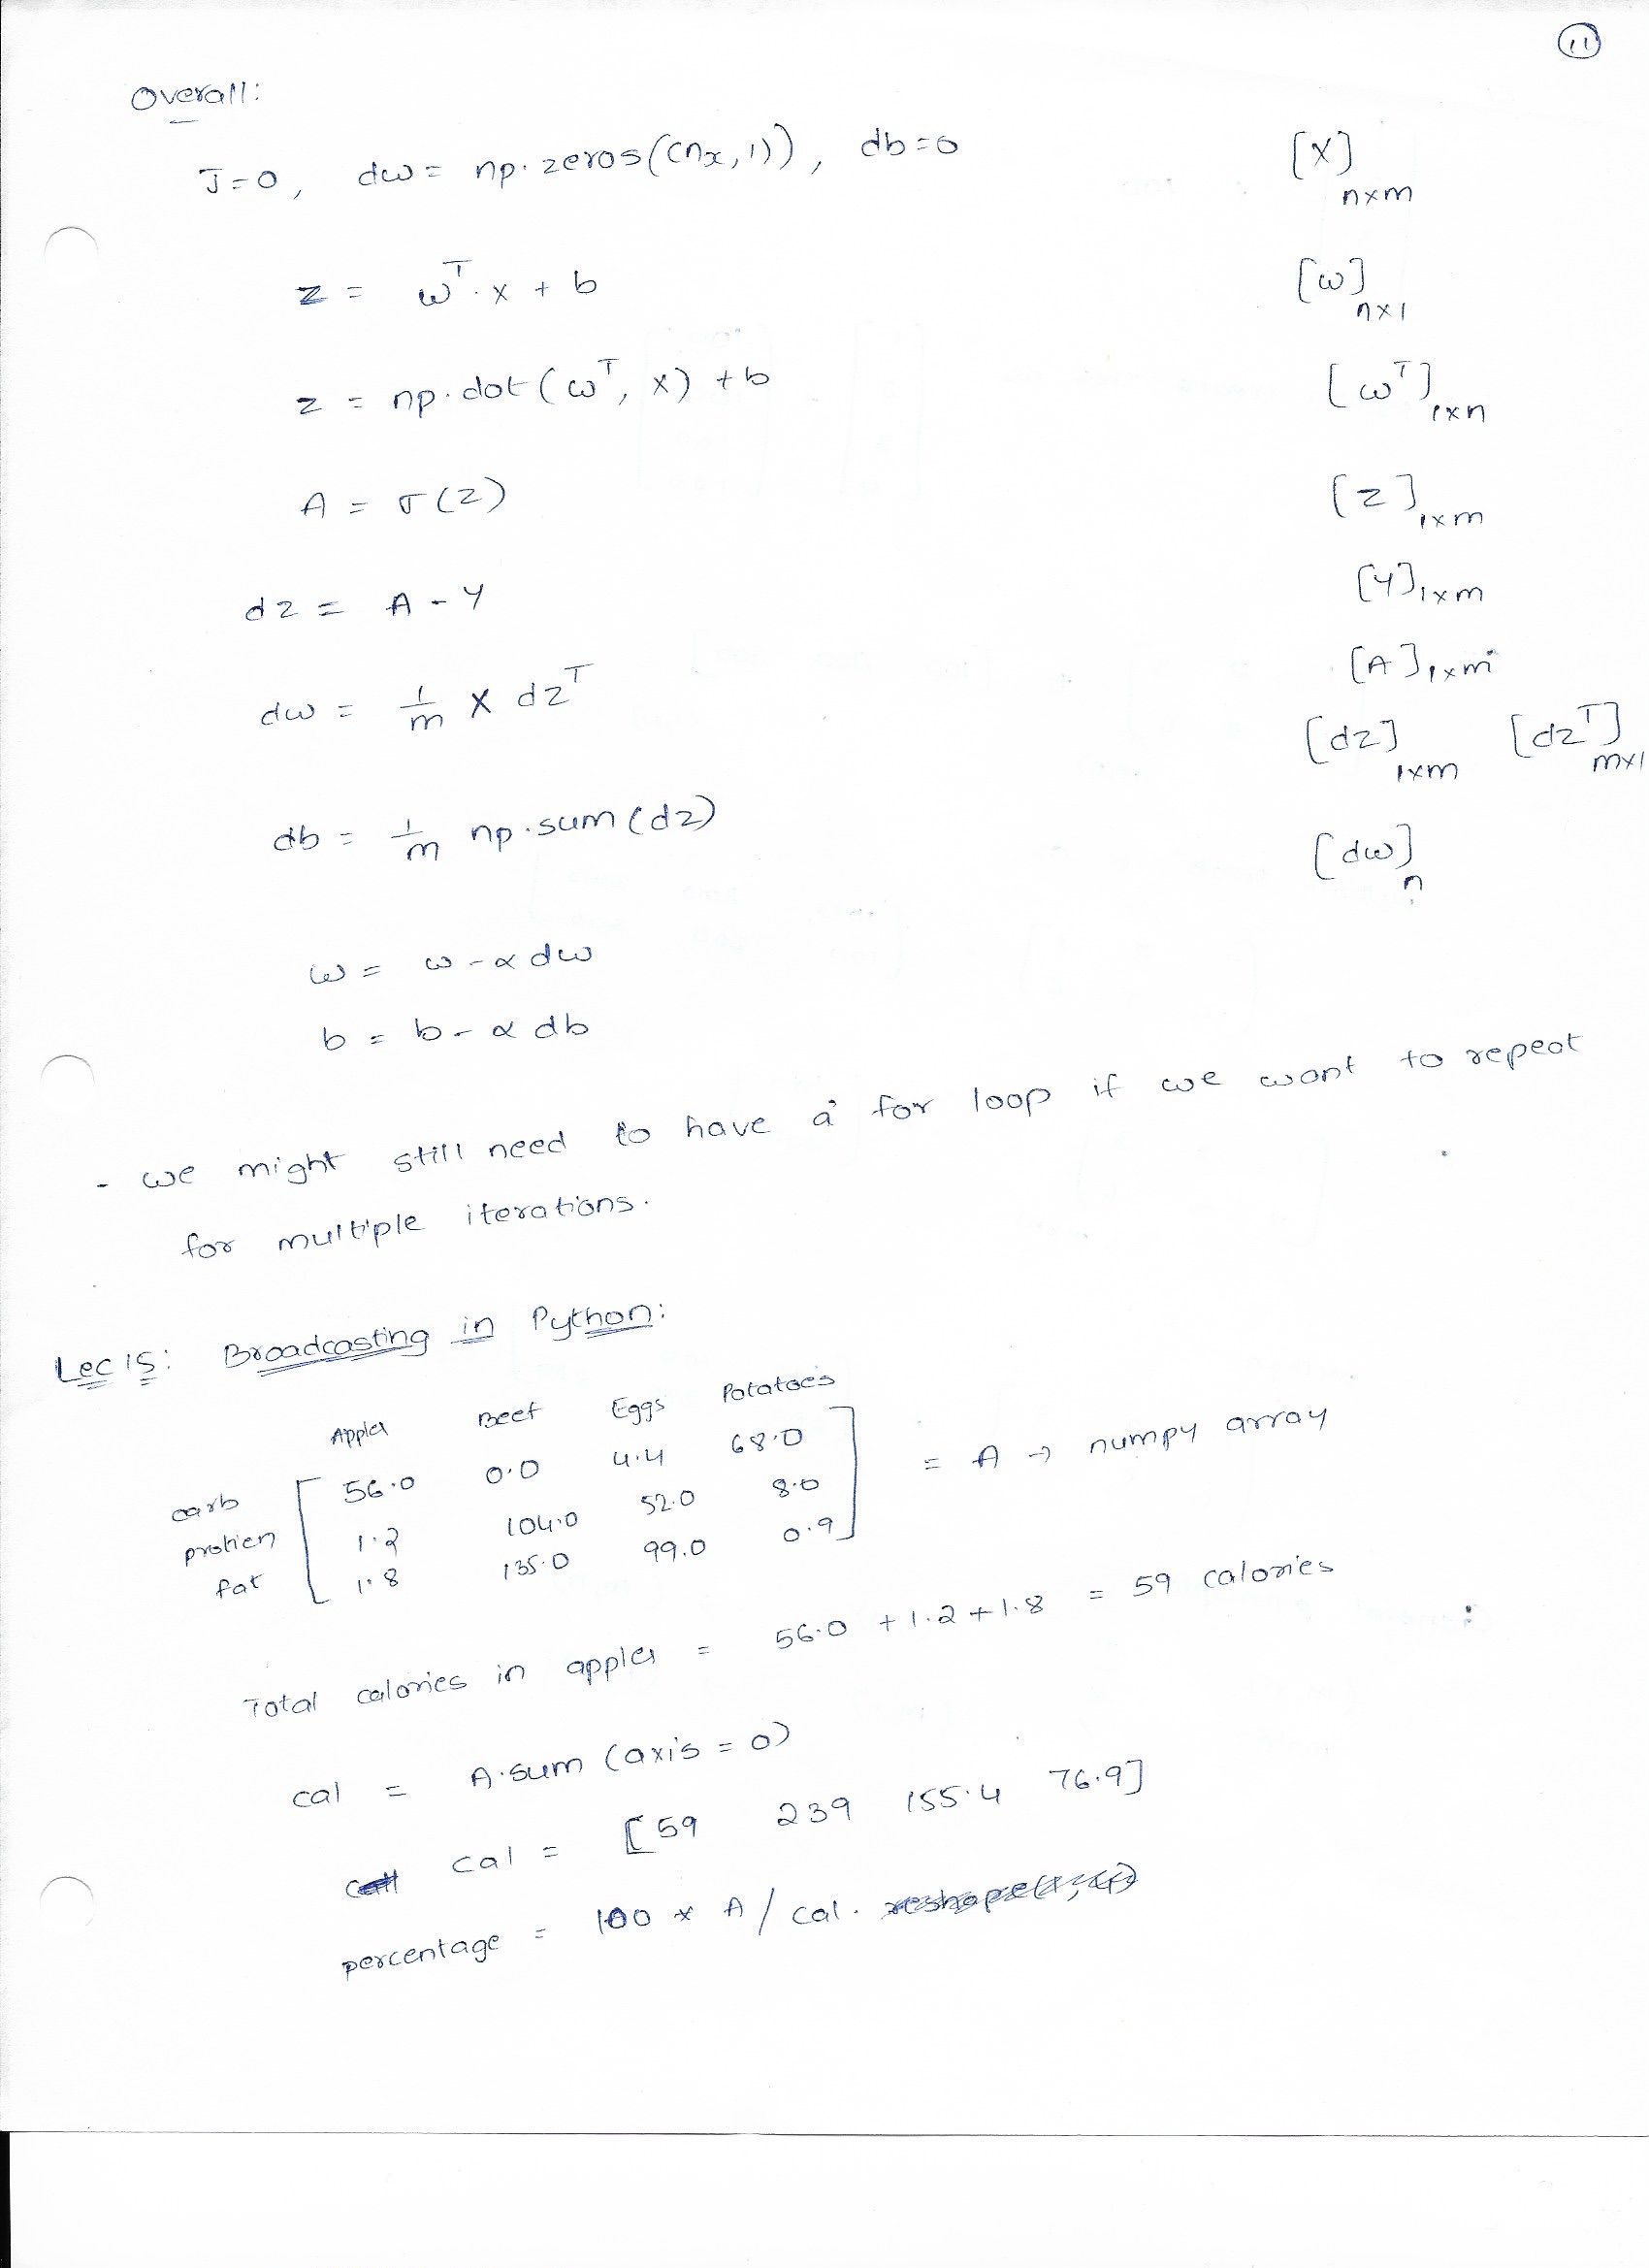 11
Overall:
J=0, dw = np.zeros((nx,1)), db=0 [X] n×m
z = w^T.x + b [w] n×1
z = np.dot(w^T, x) + b [w^T] 1×n
A = σ(z) [z] 1×m
dz = A - Y [Y] 1×m
[A] 1×m
dw = 1/m X dz^T [dz] 1×m [dz^T] m×1
db = 1/m np.sum(dz) [dw] n
w = w - α dw
b = b - α db
- we might still need to have a for loop if we want to repeat
for multiple iterations.
Lec 15: Broadcasting in Python:
Apples Beef Eggs Potatoes
carb 56.0 0.0 4.4 68.0
protien 1.2 104.0 52.0 8.0 = A → numpy array
fat 1.8 135.0 99.0 0.9
Total calories in apples = 56.0 + 1.2 + 1.8 = 59 calories
cal = A.sum (axis = 0)
cal = [59 239 155.4 76.9]
percentage = 100 * A / cal.